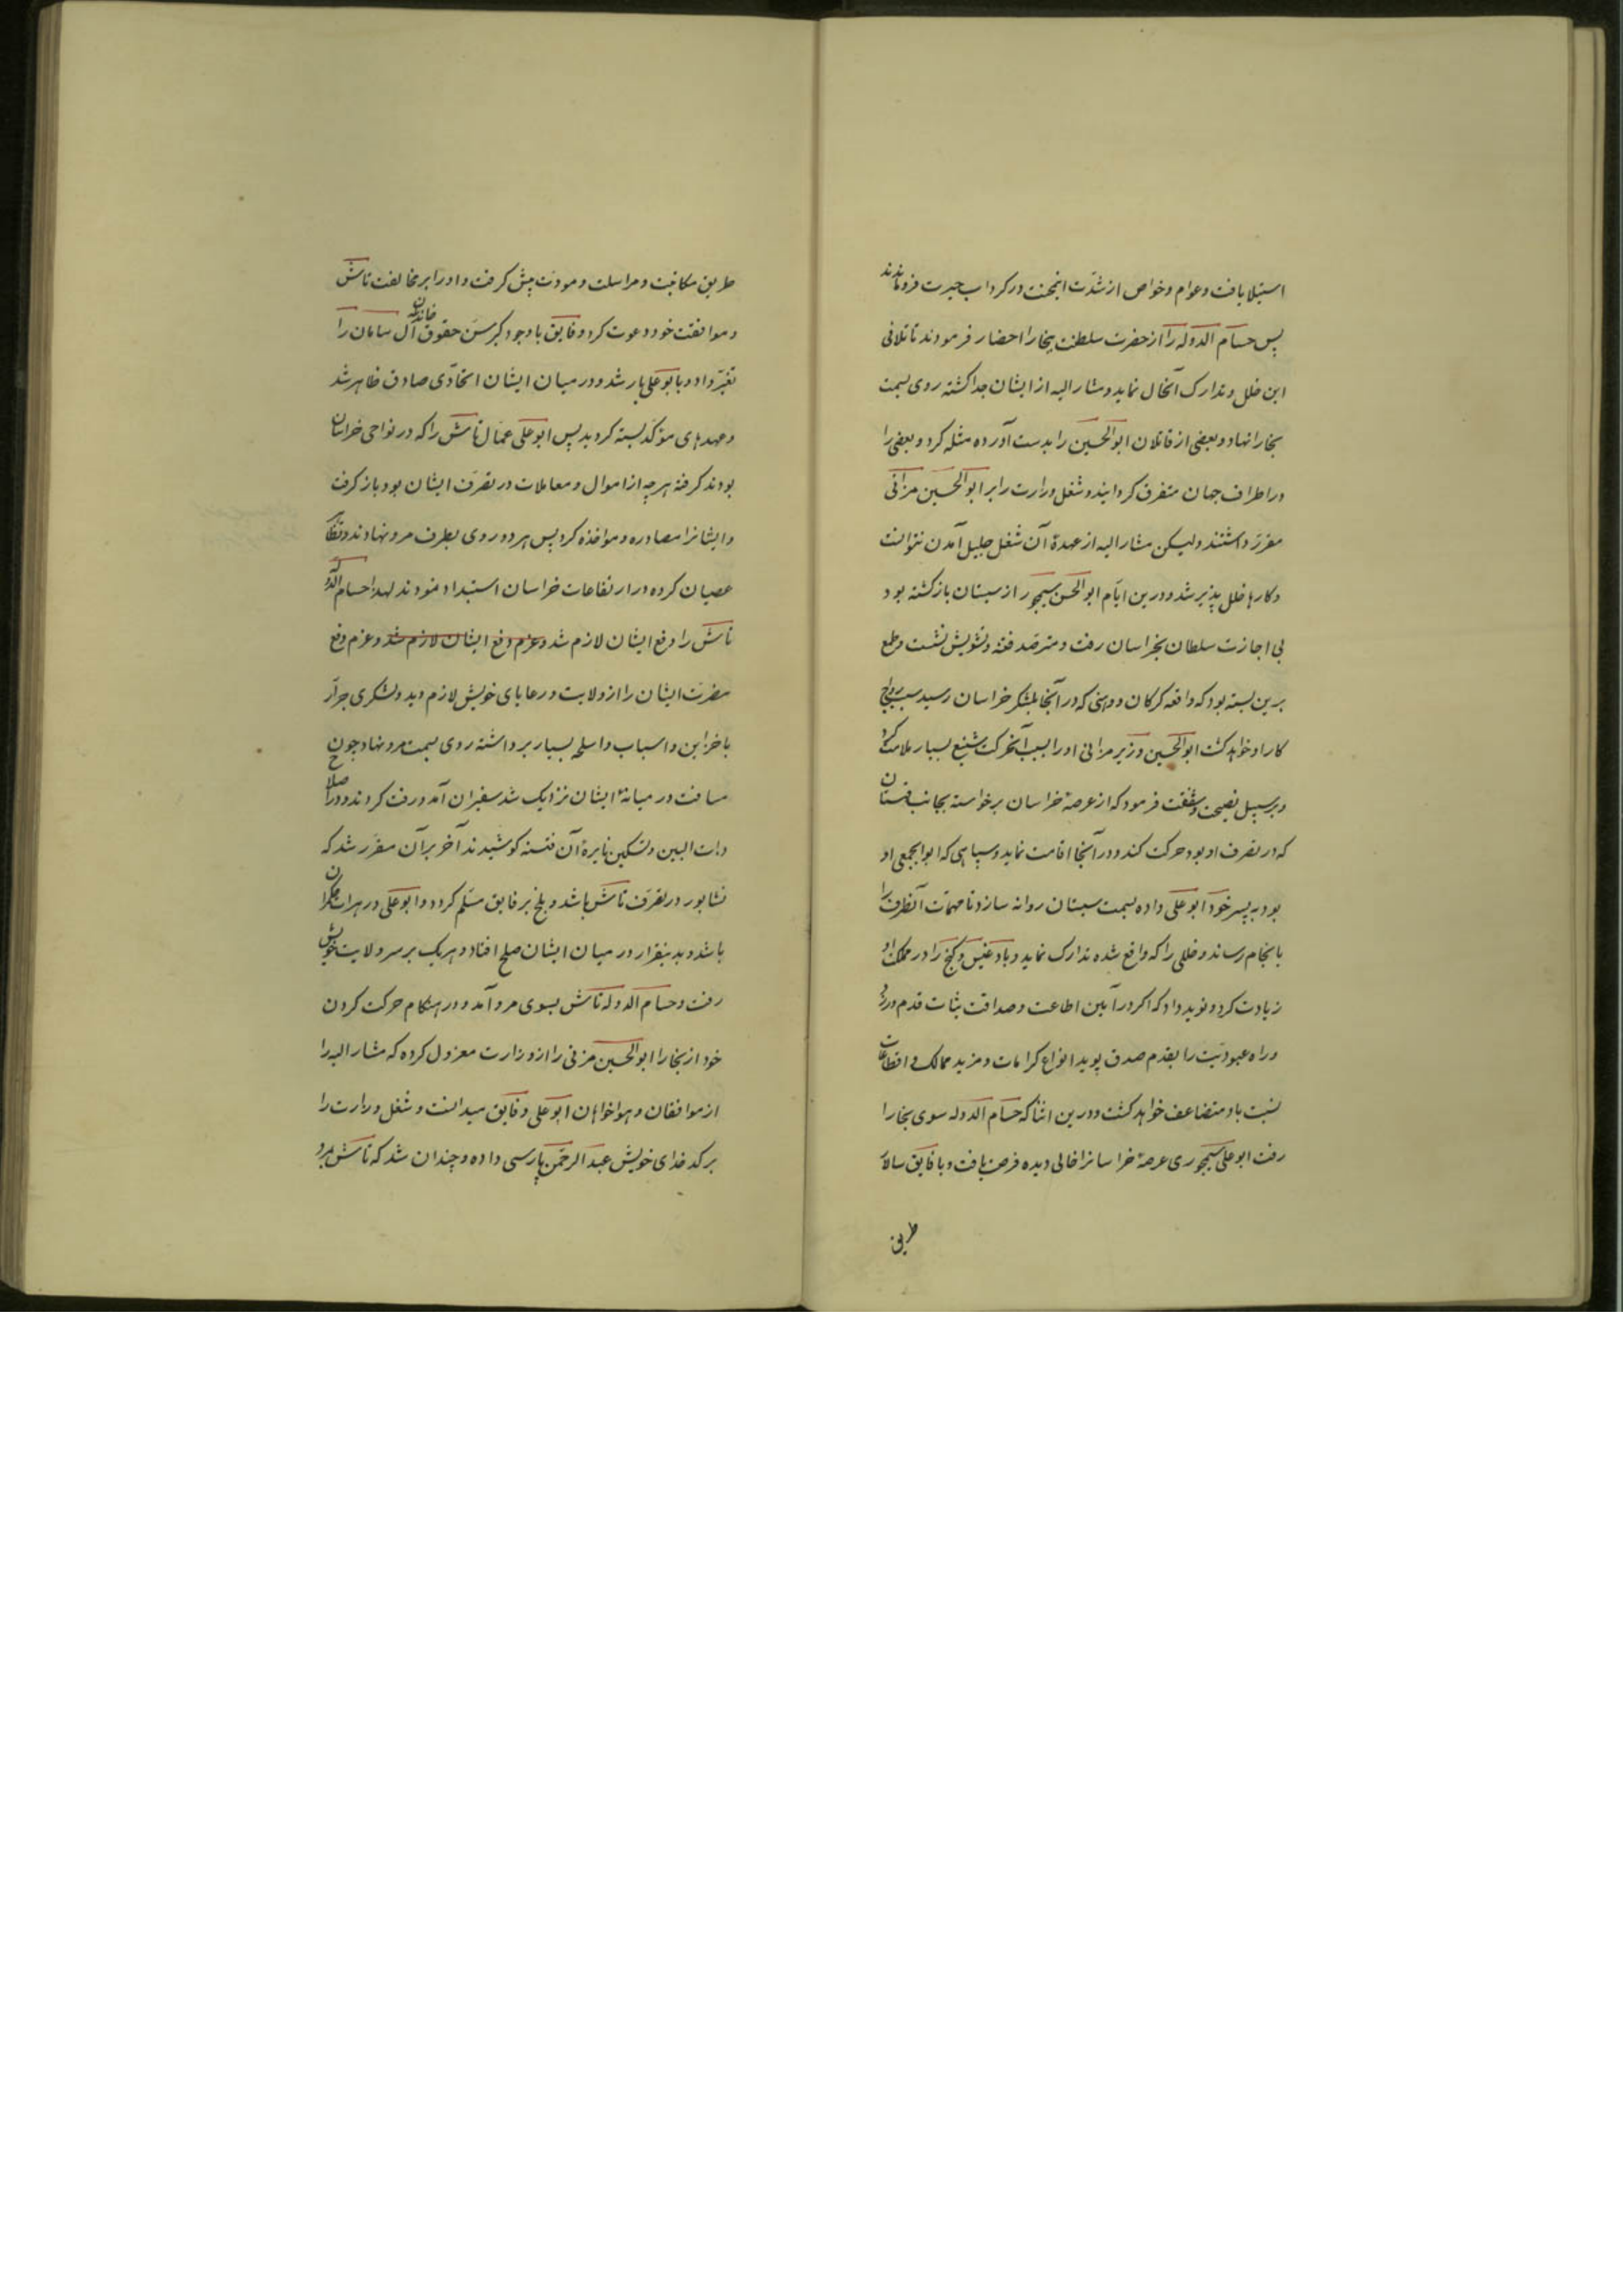 استیلا یافت و عوام و خواص از شدّت اینحمت در کرداب حیرت فروماندند
پس حسام الدوله را از حضرت سلطنت بخارا احضار فرمودند تا تلافی
این خلل و تدارک آنحال نماید و مشار الیه از ایشان جدا کشته روی بسمت
بخارا نهاد و بعضی از قاتلان ابو الحسین را بدست آورده مثله کرد و بعضی را
در اطراف جهان متفرق کردانید و شغل وزارت را بر ابو الحسین مزانی
مقرّر داشتند ولیکن مشار الیه از عهدهٔ آن شغل جلیل آمدن نتوانست
و کارها خلل پذیر شد و درین ایّام ابو الحسن سیمجور از سیستان بازکشته بود
بی اجازت سلطان بخراسان رفت و مترصد فتنه و تشویش نشست و طمع
برین بسته بود که واقعه کرکان و وهنی که در آنجا بلشکر خراسان رسید سبب رواج
کار او خواهد کشت ابو الحسین وزیر مزانی او را بسبب آنحرکت شنیع بسیار ملامت کرد
و بر سبیل نصیحت و شفقت فرمود که از عرصهٔ خراسان برخواسته بجانب قهستان
که در تصرف او بود حرکت کند و در آنجا اقامت نماید و سپاهی که ابوابجمعی او
بود به پسر خود ابو علی داده بسمت سیستان روانه سازد تا مهمّات آنطرف را
بانجام رساند و خللی را که واقع شده تدارک نماید و بادغیس و کنج را در ممالک او
زیادت کرد و نوید داد که اکر در آیین اطاعت و صداقت بثبات قدم ورزد
و راه عبودیّت را بقدم صدق پوید انواع کرامات و مزید ممالک و اقطاعات
نسبت باو متضاعف خواهد کشت و درین اثنا که حسام الدوله سوی بخارا
رفت ابو علی سیمجوری عرصهٔ خراسانرا خالی دیده فرصت یافت و با فایق سالار
طریق
طریق مکاتبت و مراسلت و مودّت پیش کرفت و او را بر مخالفت تاش
و موافقت خود دعوت کرد و فایق با وجود کبر سنّ حقوق خاندان آل سامان را
تغیّر داد و با بو علی یار شد و در میان ایشان اتحّادی صادق ظاهر شد
و عهدهای مؤکّد بسته کردید پس ابو علی عمّال تاش را که در نواحی خراسان
بودند کرفته هرچه از اموال و معاملات در تصرّف ایشان بود باز کرفت
و ایشانرا مصادره و مواخذه کرد پس هر دو روی بطرف مرو نهادند و تظاهر
عصیان کرده در ارتفاعات خراسان استبداد نمودند لهذا حسام الدوله
تاش را دفع ایشان لازم شد و عزم دفع ایشان لازم شد و عزم دفع
مضرّت ایشان را از ولایت و رعایای خویش لازم دید و لشکری جرّار
با خزاین و اسباب و اسلحه بسیار برداشته روی بسمت مرو نهاد چون
مسافت در میانهٔ ایشان نزدیک شد سفیران آمد و رفت کردند و در اصلاح
ذات البین و تسکین نایرهٔ آن فتنه کوشیدند آخر بر آن مقرّر شد که
نشابور در تصرّف تاش باشد و بلخ بر فایق مسلّم کردد و ابو علی در هرات حکمران
باشد و بدینقرار در میان ایشان صلح افتاد و هریک بر سر ولایت خویش
رفت و حسام الدوله تاش بسوی مرو آمد و در هنکام حرکت کردن
خود از بخارا ابو الحسین مزنی را از وزارت معزول کرده که مشار الیه را
از موافقان و هواخواهان ابو علی و فایق میدانست و شغل وزارت را
بر کدخدای خویش عبد الرحمن پارسی داده و چندان شد که تاش بمرو